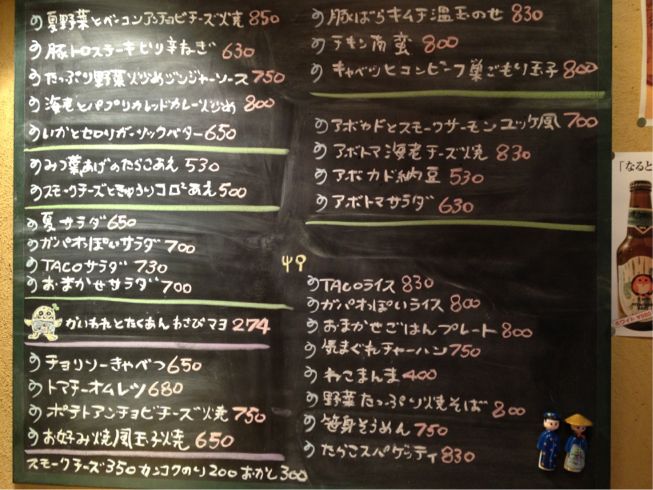 の夏野菜とベーコンアンチョビチーズ焼 850
の豚トロステーキピリ辛ねぎ 630
のたっぷり野菜炒めジンジャーソース 750
の海老とパプリカレッドカレー炒め 800
のいかとセロリガーリックバター 650
のみつ葉あげのたらこあえ 530
のスモークチーズときゅうりコロコロあえ 500
の夏サラダ 650
のガパオっぽいサラダ 700
のTACOサラダ 730
のおまかせサラダ 700
かいわれとたくあんわさびマヨ 274
のチョリソーきゃべつ 650
のトマチーオムレツ 680
のポテトアンチョビチーズ焼 750
のお好み焼風玉子焼 650
スモークチーズ350 カンコクのり200 おかと300
の豚ばらキムチ温玉のせ 830
のチキン南蛮 800
のキャベツとコンビーフ巣ごもり玉子 800
のアボカドとスモークサーモンユッケ風 700
のアボトマ海老チーズ焼 830
のアボカド納豆 530
のアボトマサラダ 630
のTACOライス 830
のガパオっぽいライス 800
のおまかせごはんプレート 800
の気まぐれチャーハン 750
のねこまんま 400
の野菜たっぷり焼そば 800
の笹身そうめん 750
のたらこスパゲッティ 830
「なると